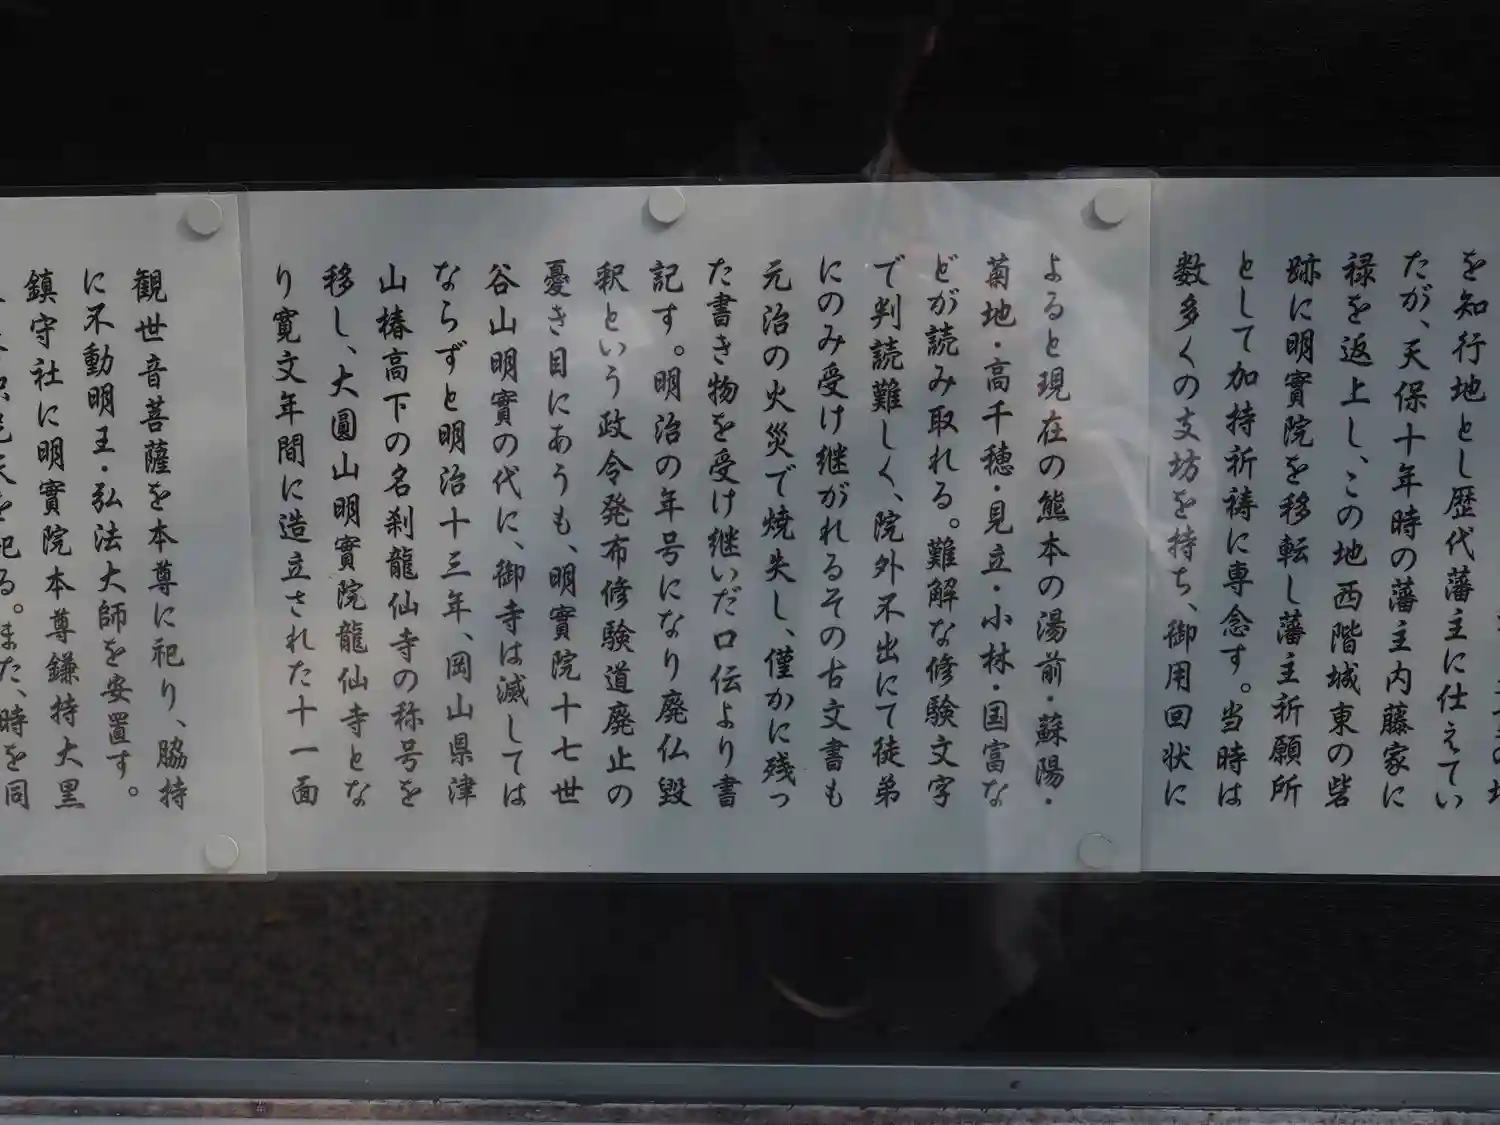 を知行地とし歴代藩主に仕えてい
たが、天保十年時の藩主内藤家に
禄を返上し、この地西階城東の砦
跡に明實院を移転し藩主祈願所
として加持祈祷に専念す。当時は
数多くの支坊を持ち、御用回状に
よると現在の熊本の湯前・蘇陽・
菊地・高千穂・見立・小林・国富な
どが読み取れる。難解な修験文字
で判読難しく、院外不出にて徒弟
にのみ受け継がれるその古文書も
元治の火災で焼失し、僅かに残っ
た書き物を受け継いだ口伝より書
記す。明治の年号になり廃仏毀
釈という政令発布修験道廃止の
憂き目にあうも、明實院十七世
谷山明實の代に、御寺は滅しては
ならずと明治十三年、岡山県津
山椿高下の名刹龍仙寺の称号を
移し、大圓山明實院龍仙寺とな
り寛文年間に造立された十一面
観世音菩薩を本尊に祀り、脇持
に不動明王・弘法大師を安置す。
鎮守社に明實院本尊鎌持大黒
を祀る。また、時を同